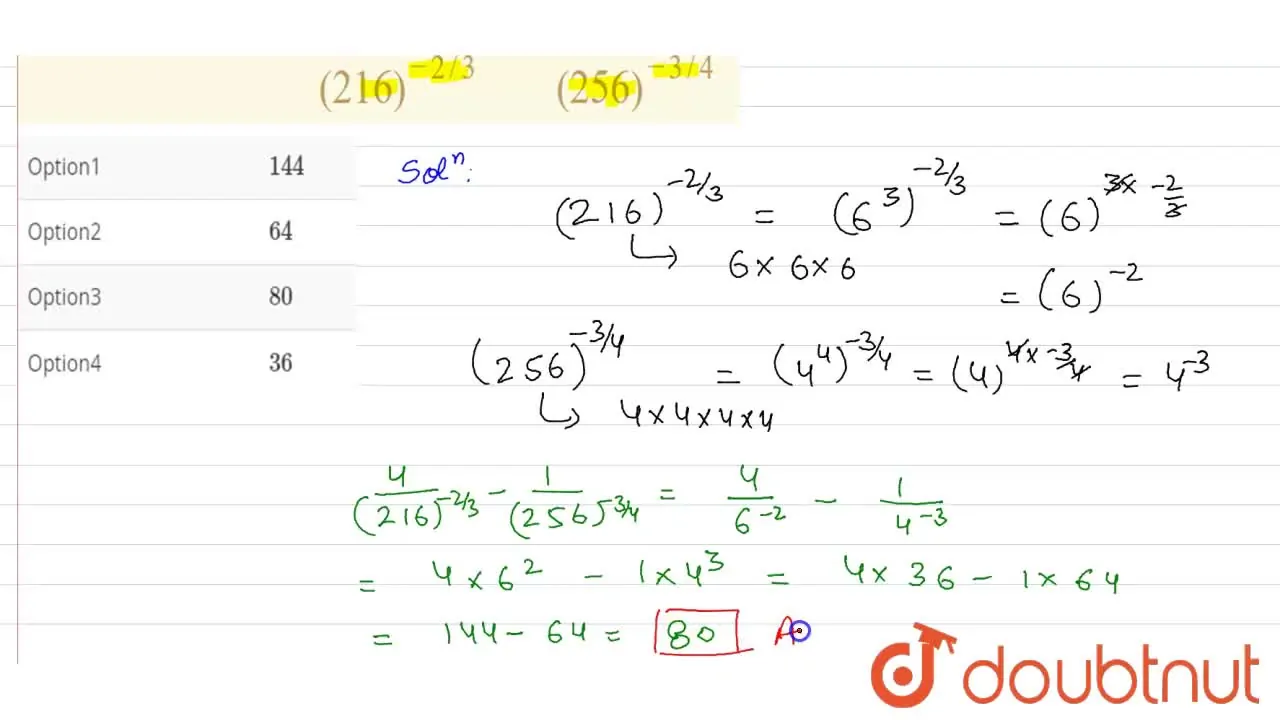 (216)^{-2/3} (256)^{-3/4}
Option1 144
Option2 64
Option3 80
Option4 36
Solⁿ:
(216)^{-2/3} = (6^3)^{-2/3} = (6)^{3× -2/3}
↳ 6×6×6
= (6)^{-2}
(256)^{-3/4} = (4^4)^{-3/4} = (4)^{4× -3/4} = 4^{-3}
↳ 4×4×4×4
4/(216)^{-2/3} - 1/(256)^{-3/4} = 4/6^{-2} - 1/4^{-3}
= 4×6^2 - 1×4^3 = 4×36 - 1×64
= 144 - 64 = 80 A
doubtnut